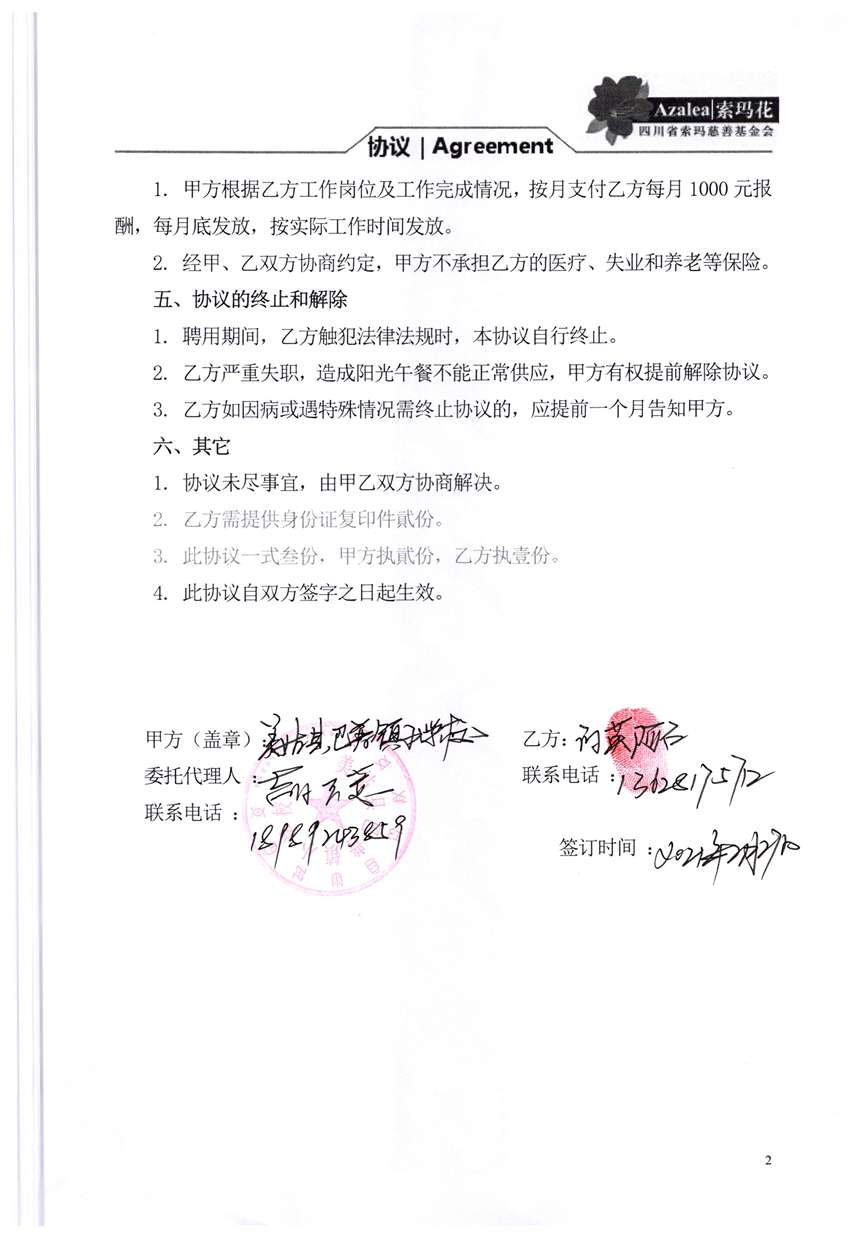 Azalea|索玛花
四川省索玛慈善基金会
协议 | Agreement
1. 甲方根据乙方工作岗位及工作完成情况，按月支付乙方每月 1000 元报
酬，每月底发放，按实际工作时间发放。
2. 经甲、乙双方协商约定，甲方不承担乙方的医疗、失业和养老等保险。
五、协议的终止和解除
1. 聘用期间，乙方触犯法律法规时，本协议自行终止。
2. 乙方严重失职，造成阳光午餐不能正常供应，甲方有权提前解除协议。
3. 乙方如因病或遇特殊情况需终止协议的，应提前一个月告知甲方。
六、其它
1. 协议未尽事宜，由甲乙双方协商解决。
2. 乙方需提供身份证复印件贰份。
3. 此协议一式叁份，甲方执贰份，乙方执壹份。
4. 此协议自双方签字之日起生效。
甲方（盖章）：美姑县巴普镇
乙方：
委托代理人：
联系电话：
联系电话：
签订时间：2021年2月27日
2